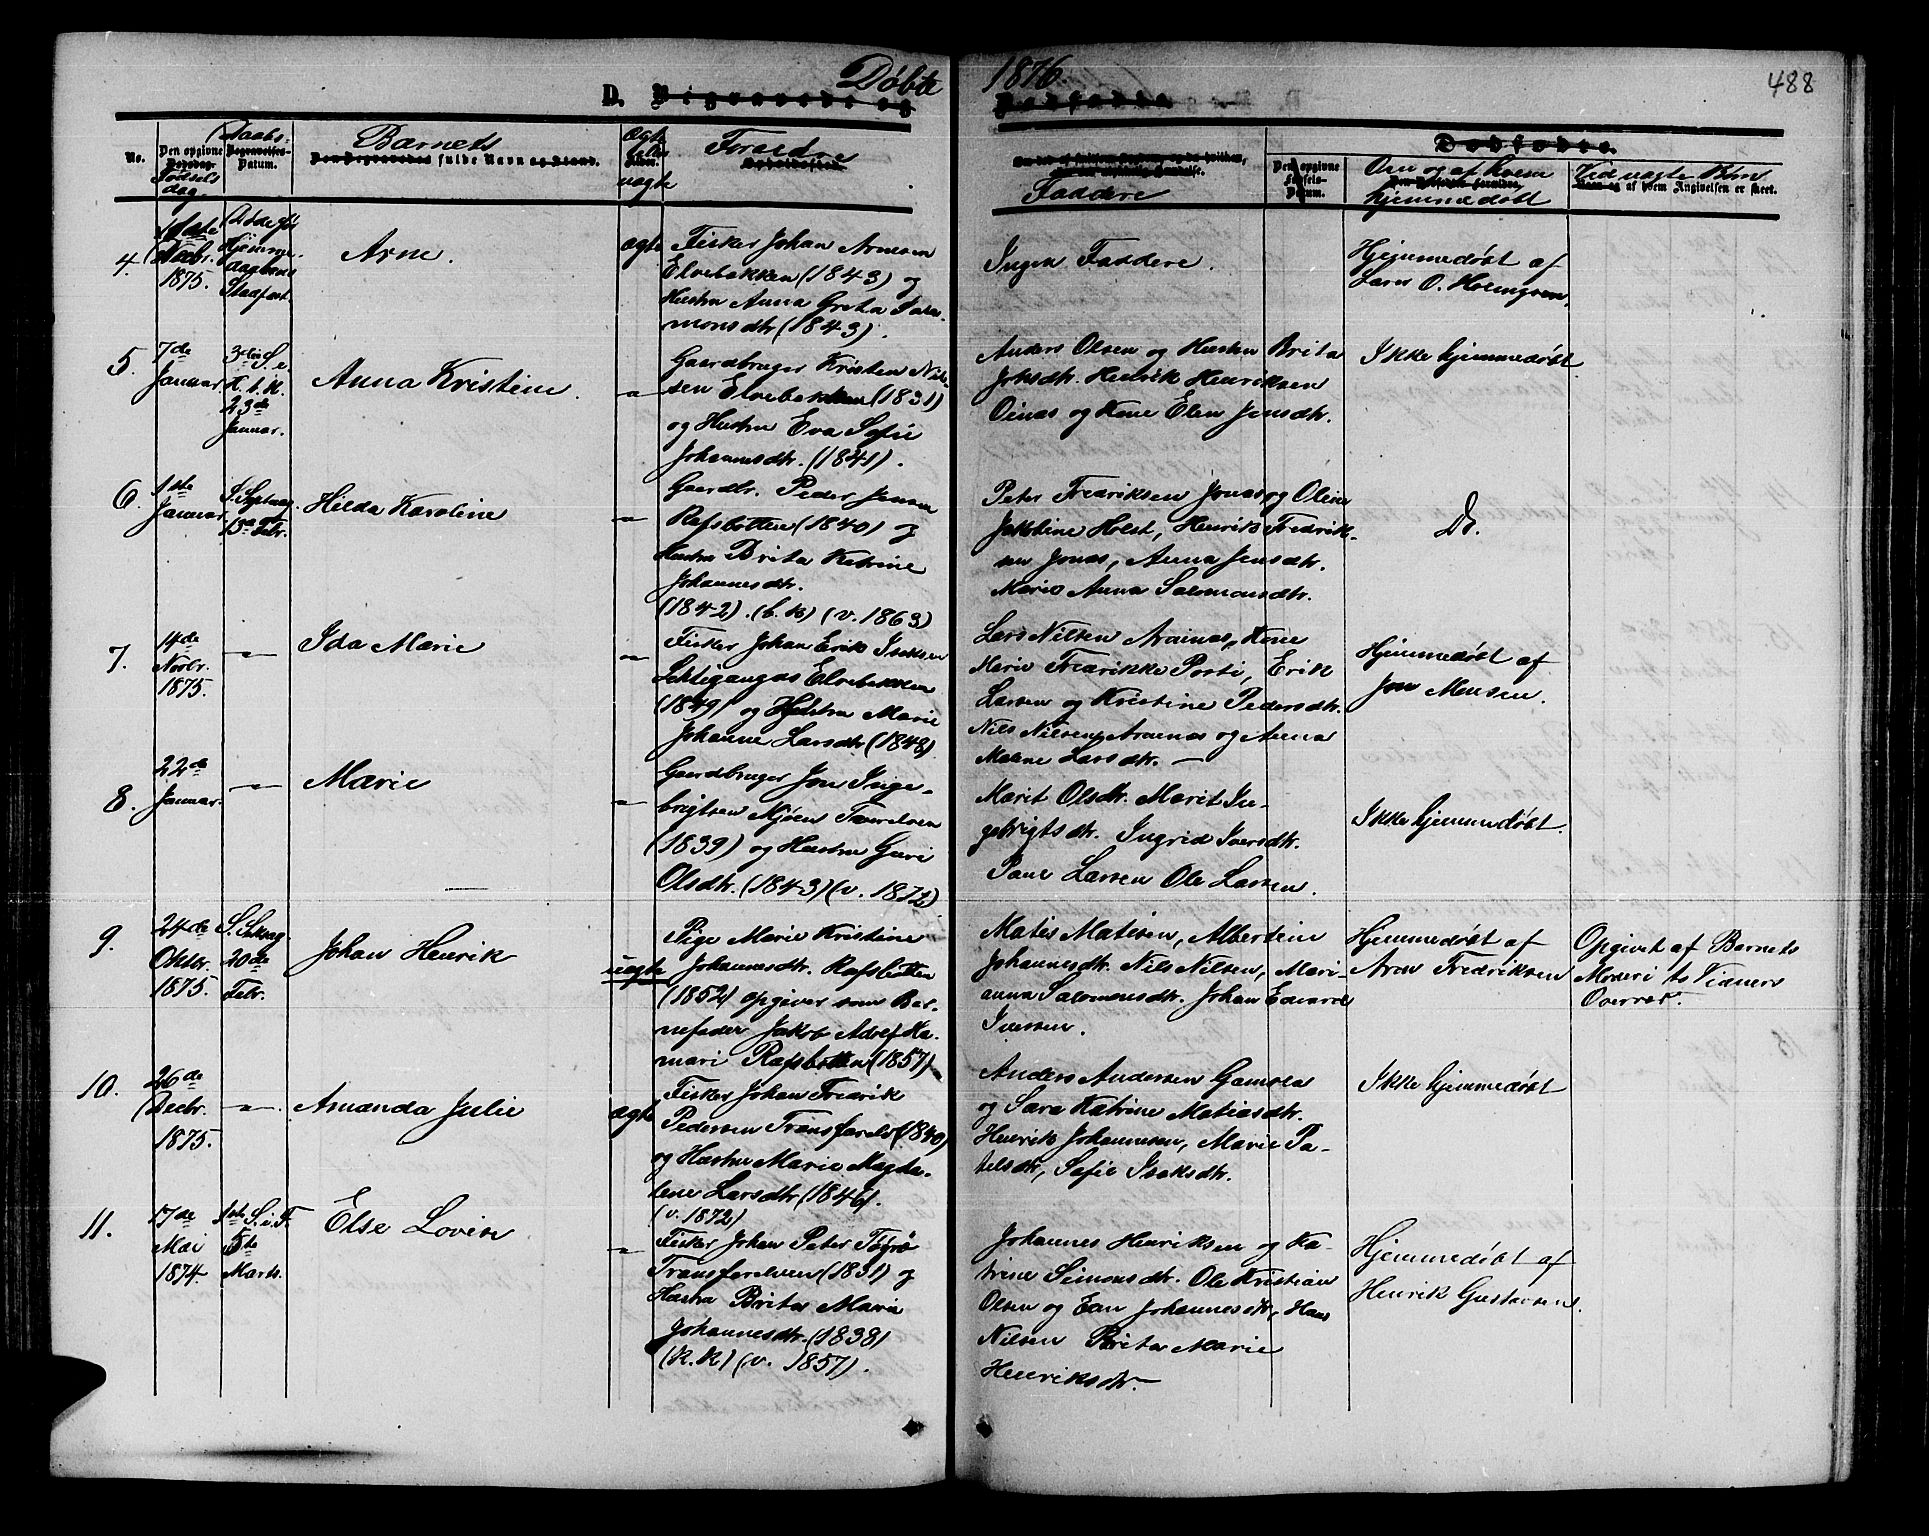 Døbte 1876.
488
D. Begravede og Dødfødte.
Dødfødte.
No.
Den opgivne Dødsdag.
Fødselsdag.
Daabs-
Begravelses-Datum.
Barnets
Den Begravedes fulde Navn og Stand.
Ægte eller uægte
Forældre
Faddere
Den opgivne Fødsels-Datum.
Om og af hvem hjemmedøbt
Ved uægte Børn
af hvem Angivelsen er skeet.
4.
Novbr.
1875.
Stadfæst.
Arne.
ægte
Fisker Johan Arnesen
Elvebakken (1843) og
Hustru Anna Greta Salo-
monsdtr (1843).
Ingen Faddere.
Hjemmedøbt af
Lars O. Holmgren.
5.
7de
Januar.
3die S. e.
H. 3. K.
23de
Januar.
Anna Kristine.
"
Gaardbruger Kristen Nil-
sen Elvebakken (1831)
og Hustru Eva Sofie
Johannesdtr. (1841).
Anders Olsen og Hustru Brita
Johsdtr. Henrik Henriksen
Oinas og Kone Elen Jensdtr.
Ikke hjemmedøbt.
6.
1ste
Januar
S. Septuag.
13de Febr.
Hilda Karoline
"
Gaardbr. Peder Jensen
Rafsbotten (1840) og
Hustru Brita Katrine
Johannesdtr.
(1842). (b. k) (v. 1863)
Peter Fredriksen Jonas og Oline
Jakobine Holst, Henrik Fredrik-
sen Jonas, Anna Jensdtr.
Marie Anna Salomonsdtr.
Do.
7.
Novbr.
1875.
"
Ida Marie
"
Fisker Johan Erik Isaksen
Elvebakken
(1849) og Hustru Marie
Johanne Larsdtr (1848)
Lars Nilsen Arainas, Kone
Marie Fredrikke Porti, Erik
Larsen og Kristine Pedersdtr.
Nils Nilsen Arainas og Anna
Malene Larsdtr. —
Hjemmedøbt af
Jon Monsen.
8.
22de
Januar.
"
Marie
"
Gaardbruger Jon Inge-
brigtsen Mjøen Tverelven
(1839) og Hustru Guri
Olsdtr. (1843) (v. 1872)
Marit Olsdtr. Marit In-
gebrigtsdtr. Ingrid Iversdtr.
Paul Larsen Ole Larsen.
Ikke hjemmedøbt.
9.
24de
Oktbr.
1875.
S. Seksag.
20de
Febr.
Johan Henrik
uægte
Pige Marie Kristine
Johannesdtr. Rafsbotten
(1852) opgiver som Bar-
nefader Jakob Adolf Ka-
mari Rafsbotten (1857)
Matis Matisen, Albertine
Johannesdtr. Nils Nilsen, Mari-
anna Salomonsdtr. Johan Edvard
Iversen.
Hjemmedøbt af
Aron Fredriksen
Opgivet af Barnets
Moder i to Vidners
Overvær.
10.
26de
Decbr.
1875.
"
Amanda Julie
ægte
Fisker Johan Fredrik
Pedersen Transfarelv (1840)
og Hustru Marie Magda-
lene Larsdtr (1846).
(v. 1872)
Anders Andersen Gamvær
og Sara Katrine Matiasdtr.
Henrik Johannesen, Marie Pa-
velsdtr, Sofie Isaksdtr.
Ikke hjemmedøbt
11.
17de
Mai
1874.
1ste S. i F.
5te
Marts.
Else Lovise
"
Fisker Johan Peter Tørø
Transfarelven (1831) og
Hustru Brita Marie
Johannesdtr. (1838)
(K. K) (v. 1857).
Johannes Henriksen og Ka-
trine Simonsdtr. Ole Kristian
Olsen og Eva Johannesdtr, Hans
Nilsen Brita Marie
Henriksdtr.
Hjemmedøbt af
Henrik Gustavsen.